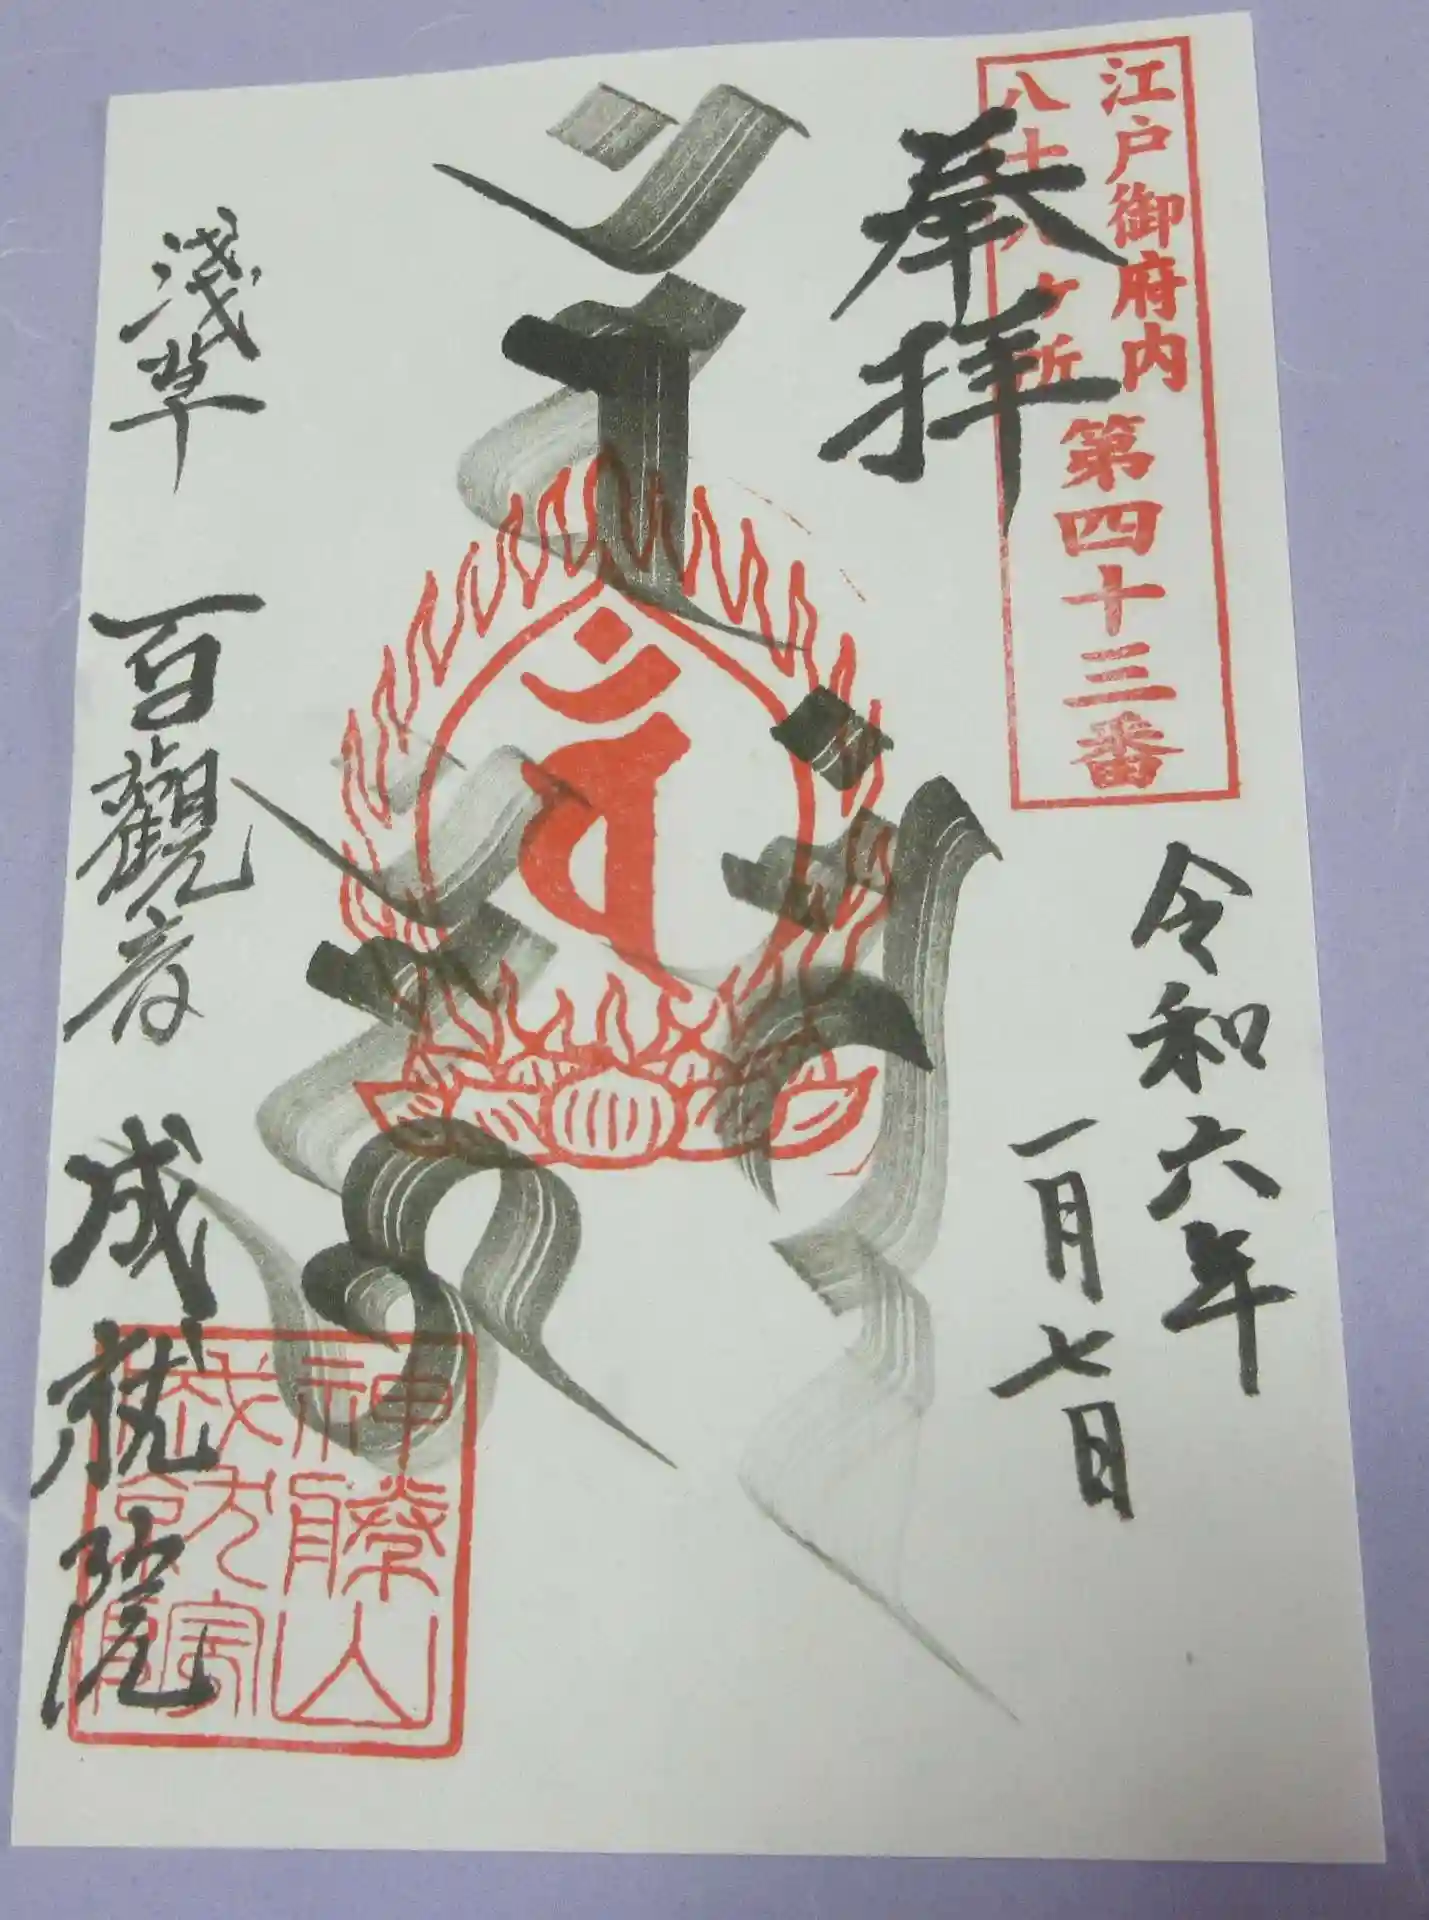 江戸御府内
八十八ヶ所
第四十三番
奉拝
令和六年
一月七日
淺草 百觀音 成就院
神勝山